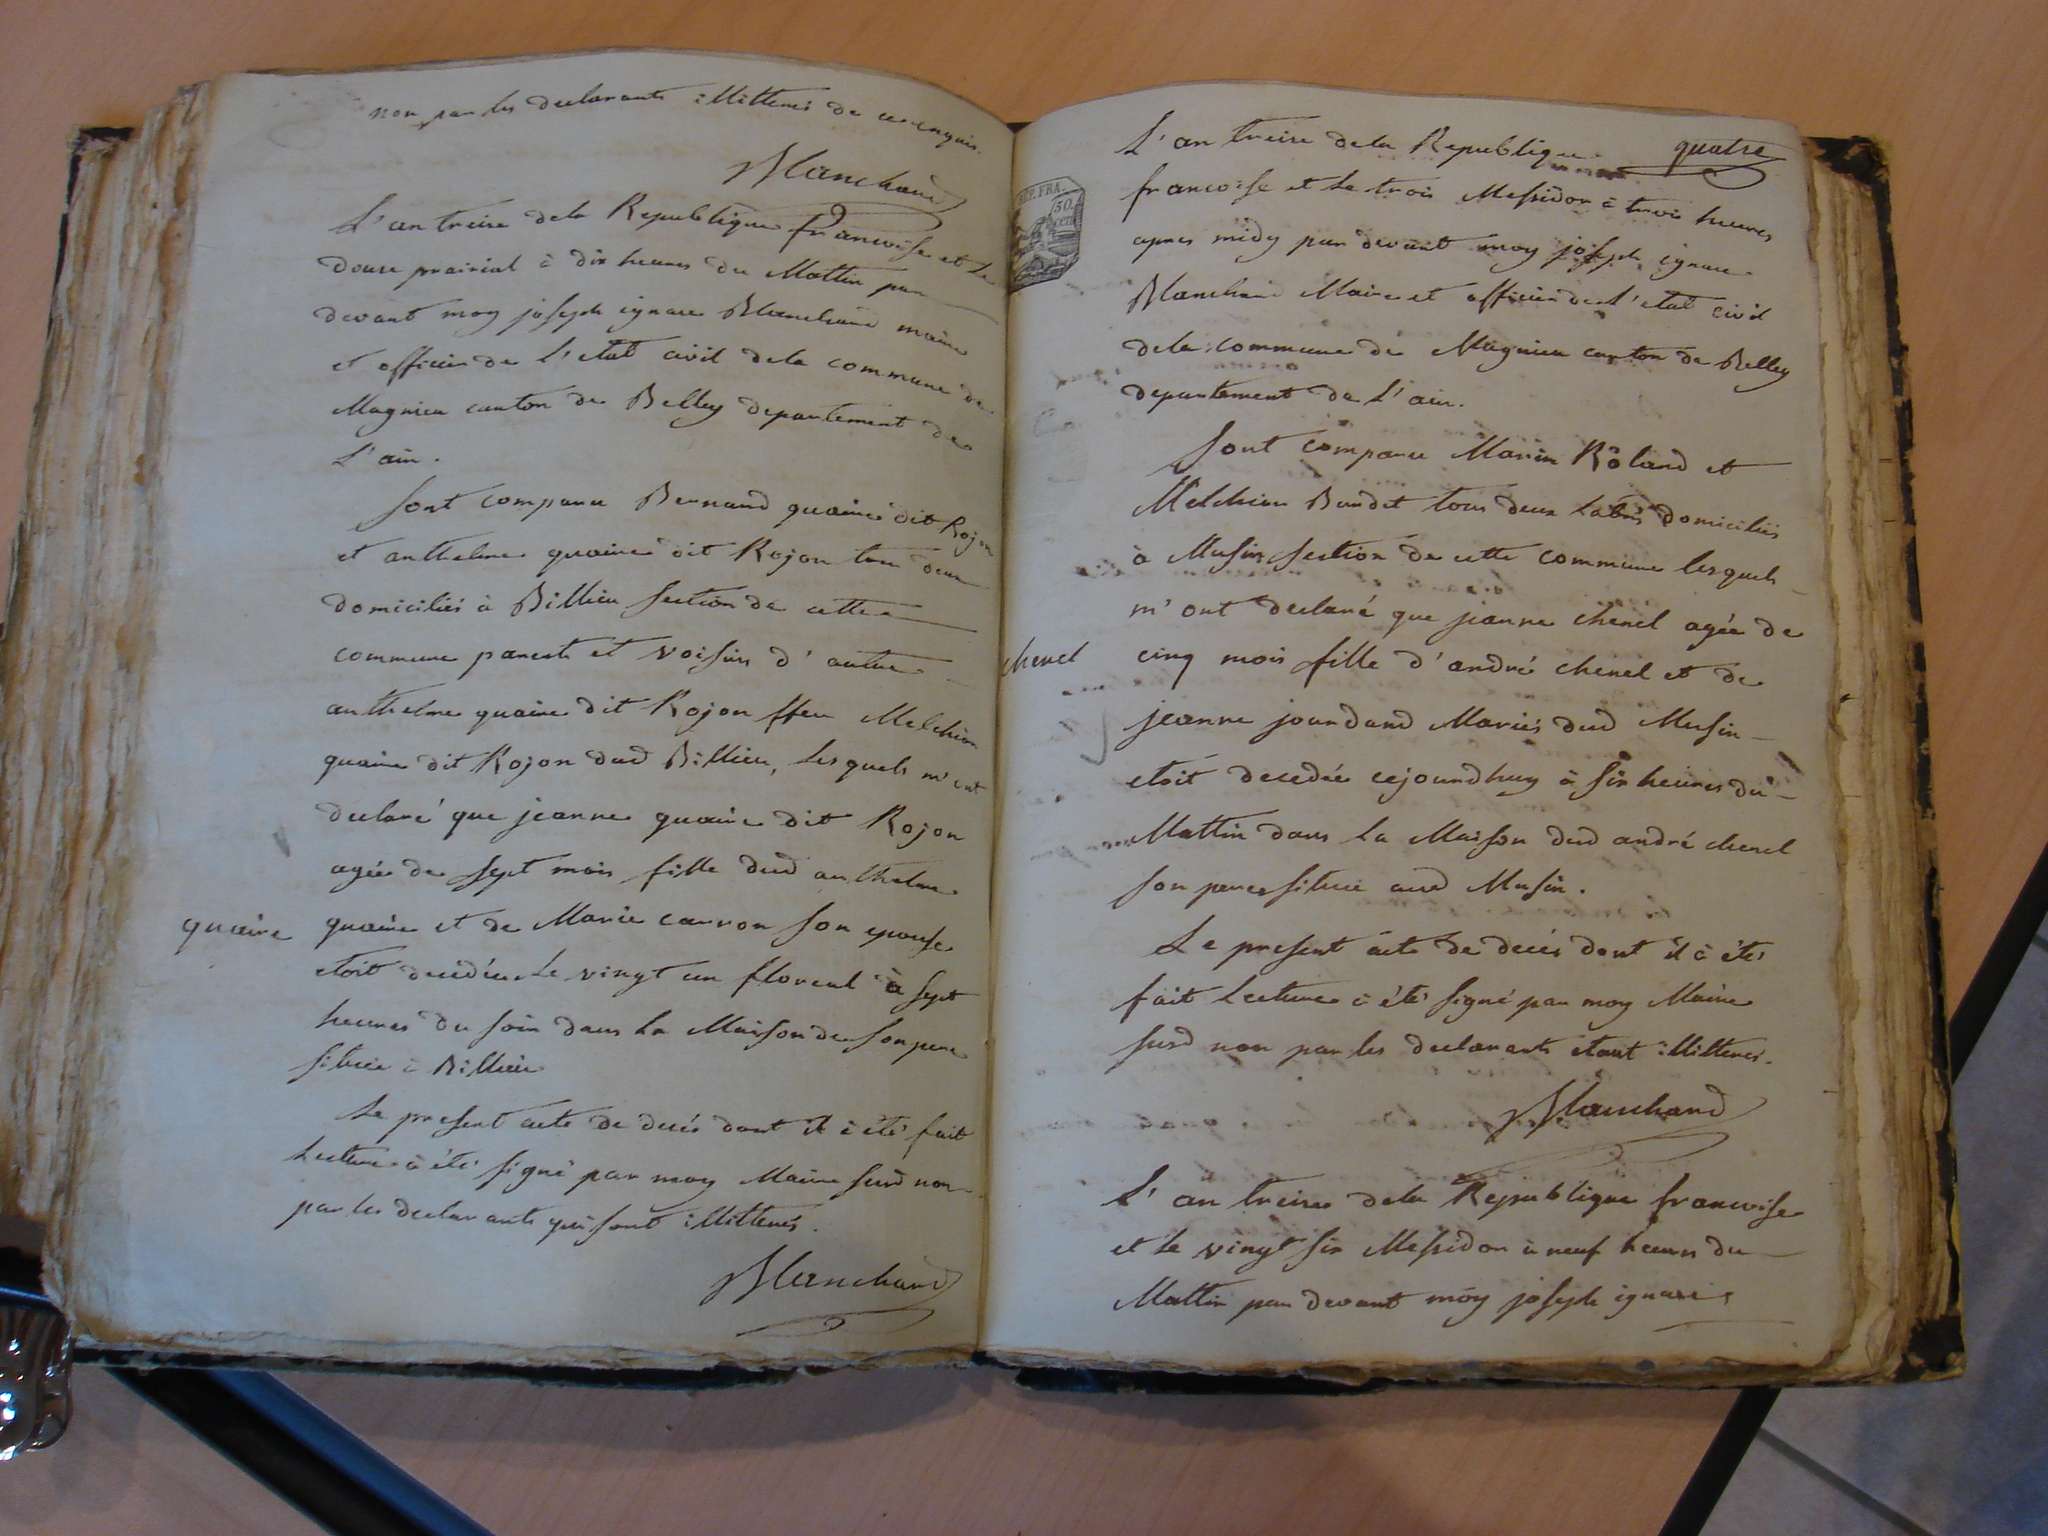 non par les declarants illitterés de ce enquis.
Blanchard
L'an treize de la Republique francoise et le
douze prairial à dix heures du Mattin par
devant moy joseph ignace Blanchard maire
et officier de l'etat civil de la commune de
Magnieu canton de Belley departement de
L'ain.
Sont comparu Bernard quaire dit Rojon
et anthelme quaire dit Rojon tous deux
domiciliés à Billieu section de cette
commune parents et voisins d'autre
anthelme quaire dit Rojon ffeu Melchior
quaire dit Rojon dud Billieu, lesquels m'ont
declaré que jeanne quaire dit Rojon
agée de sept mois fille dud anthelme
quaire
quaire et de Marie carron son epouse
etoit decedée le vingt un floreal à sept
heures du soir dans la Maison de son pere
situee à Billieu
Le present acte de decés dont il à été fait
Lecture à été signé par moy Maire susd non
par les declarants qui sont illitterés.
Blanchard
quatre
REP. FRA.
50.
cen
L'an treize de la Republique
francoise et le trois Messidor à trois heures
apres midy par devant moy joseph ignace
Blanchard Maire et officier de l'etat civil
de la commune de Magnieu canton de Belley
departement de L'ain.
Sont comparu Marin Roland et
Melchior Baudet tous deux Labrs domiciliés
à Musin section de cette commune lesquels
m'ont declaré que jeanne chenel agée de
chenel
cinq mois fille d'andré chenel et de
jeanne jourdand Mariés dud Musin
etoit decedée cejourdhuy à six heures du
Mattin dans la Maison dud andré chenel
son pere situee aud Musin.
Le present acte de decés dont il à été
fait Lecture à été signé par moy Maire
susd non par les declarants etant illitterés.
Blanchard
L'an treize de la Republique francoise
et le vingt six Messidor à neuf heures du
Mattin par devant moy joseph ignace